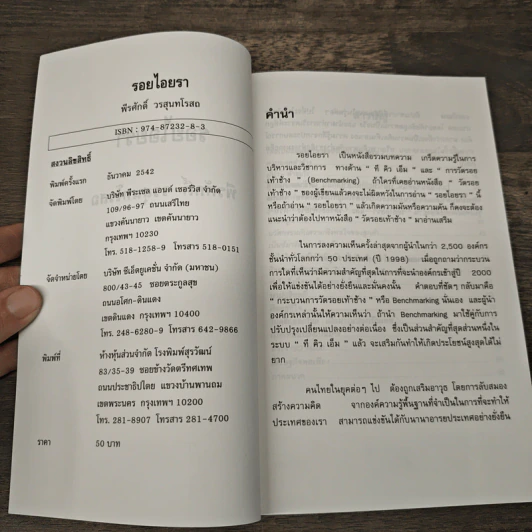 รอยไอยรา
พีรศักดิ์ วรสุนทโรสถ
ISBN : 974-87232-8-3
สงวนลิขสิทธิ์
พิมพ์ครั้งแรก ธันวาคม 2542
จัดพิมพ์โดย บริษัท พีระเซล แอนด์ เซอร์วิส จำกัด
109/96-97 ถนนเสรีไทย
แขวงคันนายาว เขตคันนายาว
กรุงเทพฯ 10230
โทร. 518-1258-9 โทรสาร 518-0151
จัดจำหน่ายโดย บริษัท ซีเอ็ดยูเคชั่น จำกัด (มหาชน)
800/43-45 ซอยตระกูลสุข
ถนนอโศก-ดินแดง
เขตดินแดง กรุงเทพฯ 10400
โทร. 248-6280-9 โทรสาร 642-9866
พิมพ์ที่ ห้างหุ้นส่วนจำกัด โรงพิมพ์สุรวัฒน์
83/35-39 ซอยข้างวัดตรีทศเทพ
ถนนประชาธิปไตย แขวงบ้านพานถม
เขตพระนคร กรุงเทพฯ 10200
โทร. 281-8907 โทรสาร 281-4700
ราคา 50 บาท
คำนำ
รอยไอยรา เป็นหนังสือรวมบทความ เกร็ดความรู้ในการ
บริหารและวิชาการ ทางด้าน " ที คิว เอ็ม " และ " การวัดรอย
เท้าช้าง " (Benchmarking) ถ้าใครที่เคยอ่านหนังสือ " วัดรอย
เท้าช้าง " ของผู้เขียนแล้วคงจะไม่ผิดหวังในการอ่าน " รอยไอยรา " นี้
หรือถ้าอ่าน " รอยไอยรา " แล้วเกิดความมันหรือความคัน ก็คงจะต้อง
แนะนำว่าต้องไปหาหนังสือ " วัดรอยเท้าช้าง " มาอ่านเสริม
ในการลงความเห็นครั้งล่าสุดจากผู้นำกว่า 2,500 องค์กร
ชั้นนำทั่วโลกกว่า 50 ประเทศ (ปี 1998) เมื่อถูกถามว่ากระบวน
การใดที่เห็นว่ามีความสำคัญที่สุดในการที่จะนำองค์กรเข้าสู่ปี 2000
เพื่อให้แข่งขันได้อย่างยั่งยืนและมั่นคงนั้น คำตอบที่ชัดๆ กลับมาคือ
" กระบวนการวัดรอยเท้าช้าง " หรือ Benchmarking นั่นเอง และผู้นำ
องค์กรเหล่านั้นให้ความเห็นว่า ถ้านำ Benchmarking มาใช้คู่กับการ
ปรับปรุงเปลี่ยนแปลงอย่างต่อเนื่อง ซึ่งเป็นส่วนสำคัญที่สุดส่วนหนึ่งใน
ระบบ " ที คิว เอ็ม " แล้ว จะเสริมกันทำให้เกิดประโยชน์สูงสุดได้ไม่
ยาก
คนไทยในยุคต่อๆ ไป ต้องถูกเสริมอาวุธ โดยการลับสมอง
สร้างความคิด จากองค์ความรู้พื้นฐานที่จำเป็นในการที่จะทำให้
ประเทศของเรา สามารถแข่งขันได้กับนานาอารยประเทศอย่างยั่งยืน